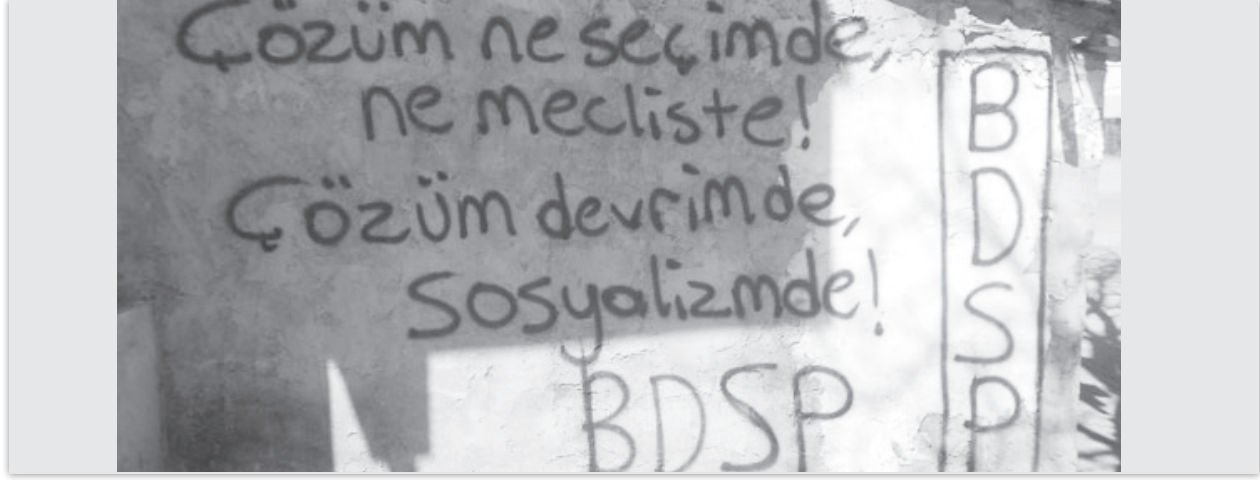 Çözüm ne seçimde,
ne mecliste!
Çözüm devrimde,
Sosyalizmde!
BDSP
BDSP